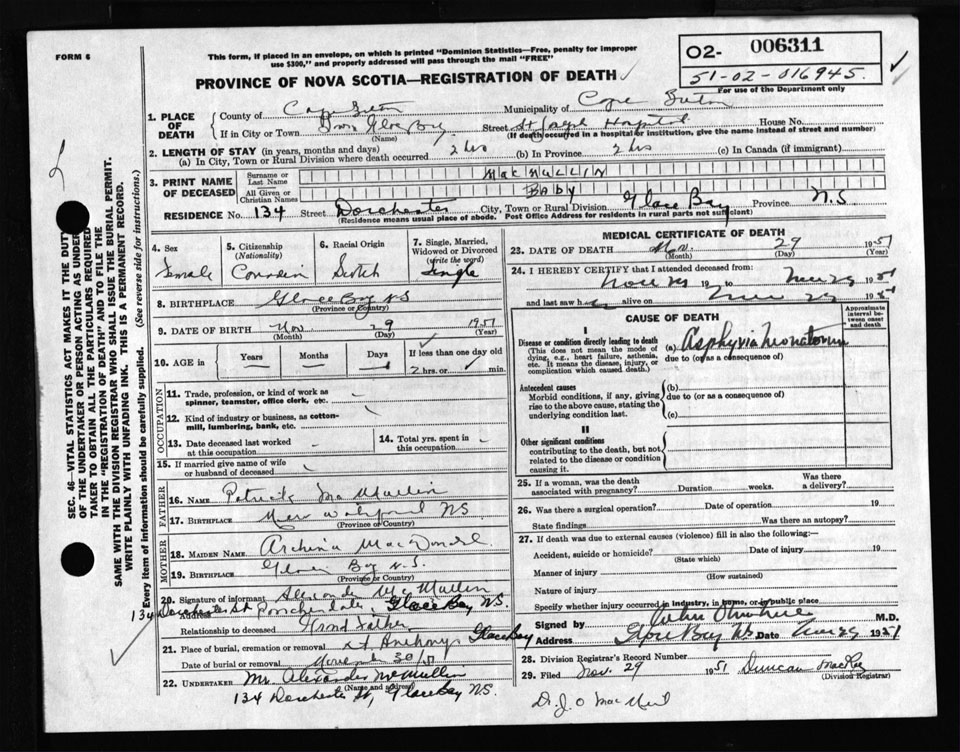 FORM 6
This form, if placed in an envelope, on which is printed "Dominion Statistics—Free, penalty for improper
use $300," and properly addressed will pass through the mail "FREE"
PROVINCE OF NOVA SCOTIA—REGISTRATION OF DEATH
O2- 006311
51-02-016945.
For use of the Department only
1. PLACE OF DEATH
County of Cape Breton Municipality of Cape Breton
If in City or Town Glace Bay Street St Joseph Hospital House No.
(Name) (If death occurred in a hospital or institution, give the name instead of street and number)
2. LENGTH OF STAY (in years, months and days)
(a) In City, Town or Rural Division where death occurred 2 hrs (b) In Province 2 hrs (c) In Canada (if immigrant)
3. PRINT NAME OF DECEASED
Surname or Last Name MacMULLIN
All Given or Christian Names BABY
RESIDENCE No. 134 Street Dorchester City, Town or Rural Division Glace Bay Province N.S
(Residence means usual place of abode. Post Office Address for residents in rural parts not sufficient)
4. Sex Female
5. Citizenship (Nationality) Canadian
6. Racial Origin Scotch
7. Single, Married, Widowed or Divorced (write the word) Single
8. BIRTHPLACE Glace Bay NS
(Province or Country)
9. DATE OF BIRTH Nov 29 1951
(Month) (Day) (Year)
10. AGE in Years — Months — Days — If less than one day old
2 hrs. or min.
OCCUPATION
11. Trade, profession, or kind of work as
spinner, teamster, office clerk, etc.
12. Kind of industry or business, as cotton-
mill, lumbering, bank, etc.
13. Date deceased last worked
at this occupation
14. Total yrs. spent in
this occupation
15. If married give name of wife
or husband of deceased
FATHER
16. NAME Patrick MacMullin
17. BIRTHPLACE New Waterford NS
(Province or Country)
MOTHER
18. MAIDEN NAME MacDonald
19. BIRTHPLACE Glace Bay N.S.
(Province or Country)
20. Signature of informant Alexander McMullin
134 Dorchester St
Address Glace Bay NS.
Relationship to deceased Grand Father
21. Place of burial, cremation or removal St Anthony's Glace Bay
Date of burial or removal 30/51
22. UNDERTAKER Mr. Alexander McMullin
(Name and address)
134 Dorchester St, Glace Bay NS.
MEDICAL CERTIFICATE OF DEATH
23. DATE OF DEATH Nov. 29 1951
(Month) (Day) (Year)
24. I HEREBY CERTIFY that I attended deceased from:
Nov 29 19 to Nov 29 1951
and last saw h alive on Nov 29 1951
CAUSE OF DEATH
Approximate interval between onset and death
I
Disease or condition directly leading to death
(This does not mean the mode of
dying, e.g., heart failure, asthenia,
etc. It means the disease, injury, or
complication which caused death.)
(a) Asphyxia Neonatorum
due to (or as a consequence of)
Antecedent causes
Morbid conditions, if any, giving
rise to the above cause, stating the
underlying condition last.
(b)
due to (or as a consequence of)
(c)
II
Other significant conditions
contributing to the death, but not
related to the disease or condition
causing it.
25. If a woman, was the death
associated with pregnancy? Duration weeks. Was there a delivery?
26. Was there a surgical operation? Date of operation 19
State findings Was there an autopsy?
27. If death was due to external causes (violence) fill in also the following:
Accident, suicide or homicide? Date of injury 19
(State which)
Manner of injury
(How sustained)
Nature of injury
Specify whether injury occurred in industry, in home, or in public place
Signed by John M.D.
Address Glace Bay NS Date Nov 29 1951
28. Division Registrar's Record Number
29. Filed Nov. 29 1951 Duncan MacKay
(Division Registrar)
Dr. J. O MacNeil
SEC. 46—VITAL STATISTICS ACT MAKES IT THE DUTY
OF THE UNDERTAKER OR PERSON ACTING AS UNDER-
TAKER TO OBTAIN ALL THE PARTICULARS REQUIRED
IN THE "REGISTRATION OF DEATH" AND TO FILE THE
SAME WITH THE DIVISION REGISTRAR WHO SHALL ISSUE THE BURIAL PERMIT.
WRITE PLAINLY WITH UNFADING INK. THIS IS A PERMANENT RECORD.
Every item of information should be carefully supplied. (See reverse side for instructions.)